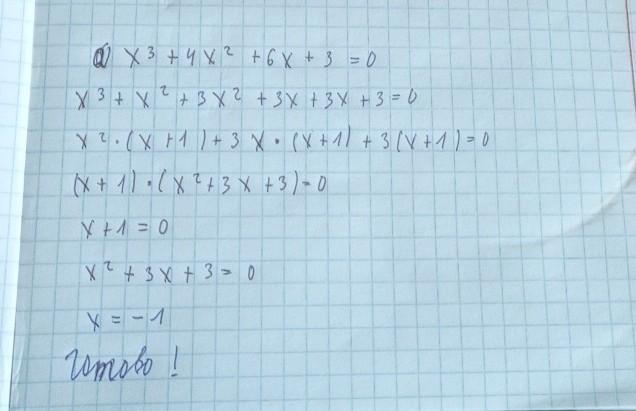 а) x³ + 4x² + 6x + 3 = 0
x³ + x² + 3x² + 3x + 3x + 3 = 0
x² · (x + 1) + 3x · (x + 1) + 3(x + 1) = 0
(x + 1) · (x² + 3x + 3) = 0
x + 1 = 0
x² + 3x + 3 = 0
x = -1
Готово!